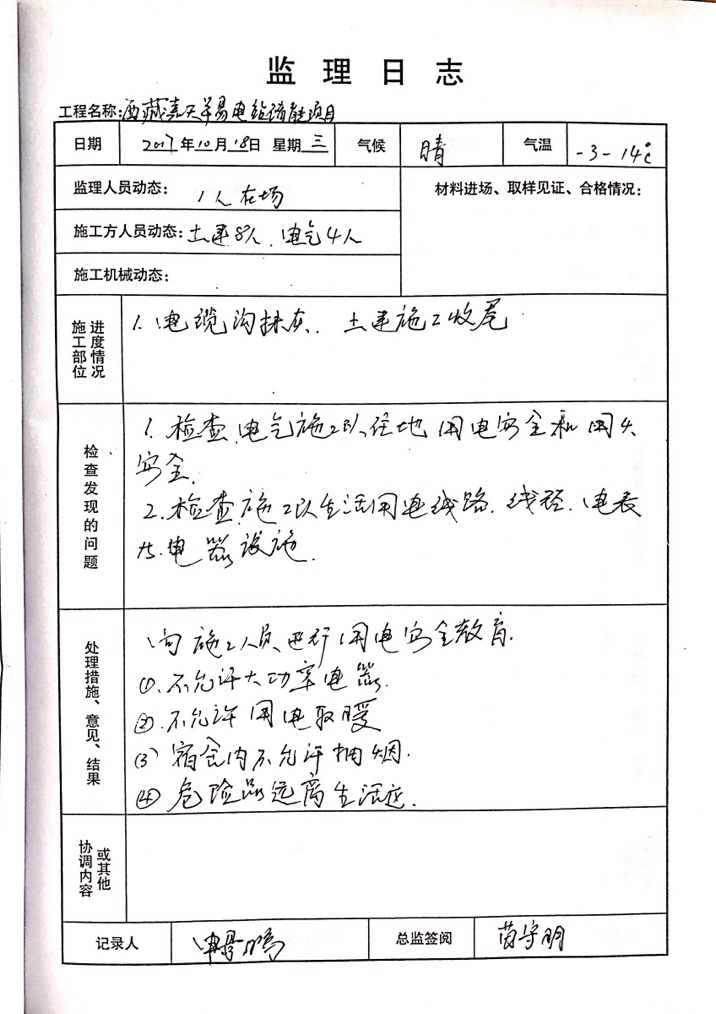 监理日志
工程名称:西藏嘉天羊易电站储能项目
日期 2017年10月18日 星期三 气候 晴 气温 -3-14℃
监理人员动态: 1人在场 材料进场、取样见证、合格情况:
施工方人员动态:土建8人、电气4人
施工机械动态:
施工部位 进度情况
1. 电缆沟抹灰、土建施工收尾
检查发现的问题
1. 检查电气施工队住地用电安全和用火
安全.
2. 检查施工队生活用电线路、线径、电表
电器设施.
处理措施、意见、结果
向施工人员进行用电安全教育.
①.不允许大功率电器.
②.不允许用电取暖
③宿舍内不允许抽烟.
④危险品远离生活区.
协调内容 或其他
记录人 总监签阅